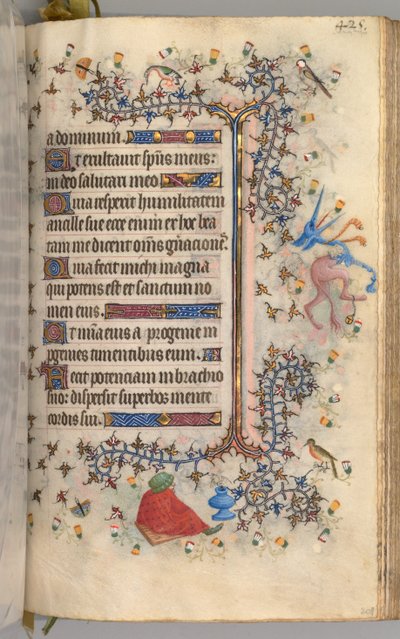 425.
a dominum.
Et exultavit sp̄us meus:
in deo salutari meo
Quia respexit humilitatem
ancille sue ecce enim ex hoc bea
tam me dicent om̄s gn̄acioneˢ.
Quia fecit michi magna
qui potens est et sanctum no
men eius.
Et mīa eius a progenie in
pgenies timentibus eum.
Fecit potenciam in brachio
suo: dispersit superbos mente
cordis sui.
208